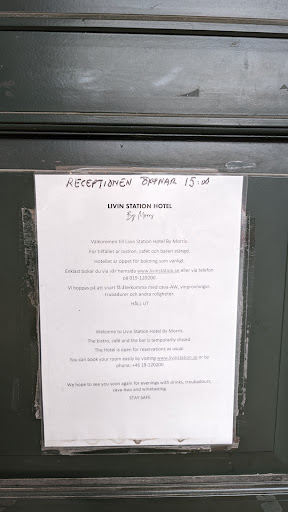 RECEPTIONEN ÖPPNAR 15:00
LIVIN STATION HOTEL
By Morris
Välkommen till Livin Station Hotel By Morris.
För tillfället är bistron, caféet och baren stängd.
Hotellet är öppet för bokning som vanligt.
Enklast bokar du via vår hemsida www.livinstation.se eller via telefon
på 019-120200.
Vi hoppas på att snart få återkomma med cava-AW, vinprovningar,
trubadurer och andra roligheter.
HÅLL UT
Welcome to Livin Station Hotel By Morris.
The bistro, café and the bar is temporarily closed.
The Hotel is open for reservations as usual.
You can book your room easily by visiting www.livinstation.se or by
phone: +46 19-120200.
We hope to see you soon again for evenings with drinks, troubadours,
cava-Aws and winetasting.
STAY SAFE.